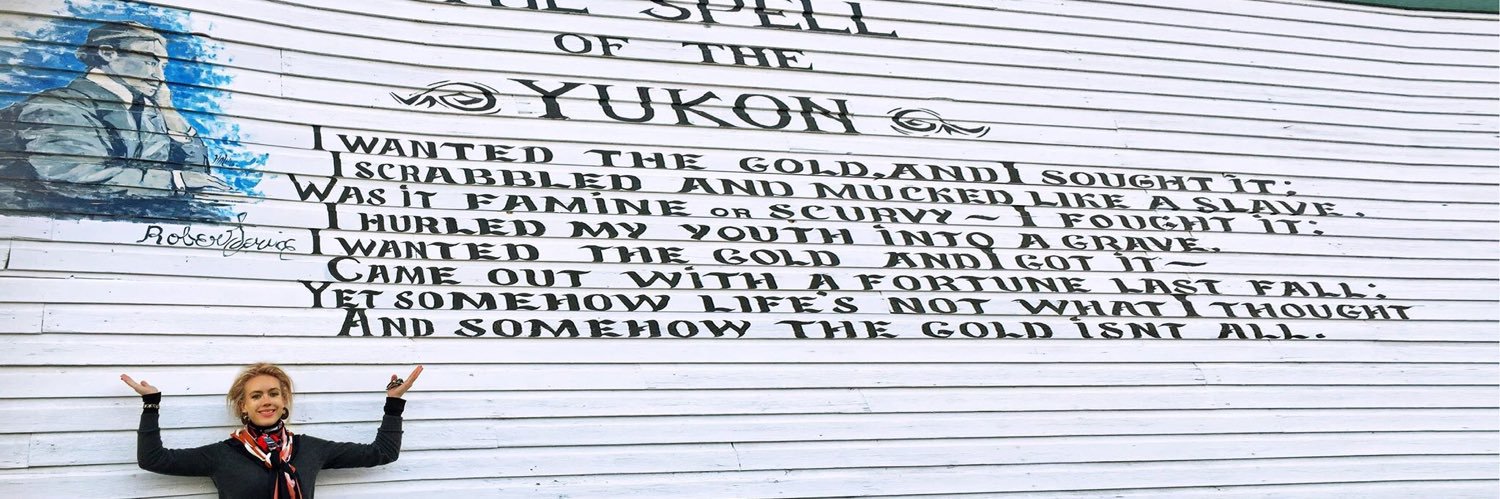 THE SPELL
OF THE
YUKON
I WANTED THE GOLD, AND I SOUGHT IT;
I SCRABBLED AND MUCKED LIKE A SLAVE.
WAS IT FAMINE OR SCURVY ~ I FOUGHT IT;
I HURLED MY YOUTH INTO A GRAVE.
I WANTED THE GOLD AND I GOT IT ~
CAME OUT WITH A FORTUNE LAST FALL;
YET SOMEHOW LIFE'S NOT WHAT I THOUGHT
AND SOMEHOW THE GOLD ISNT ALL.
Robert Service